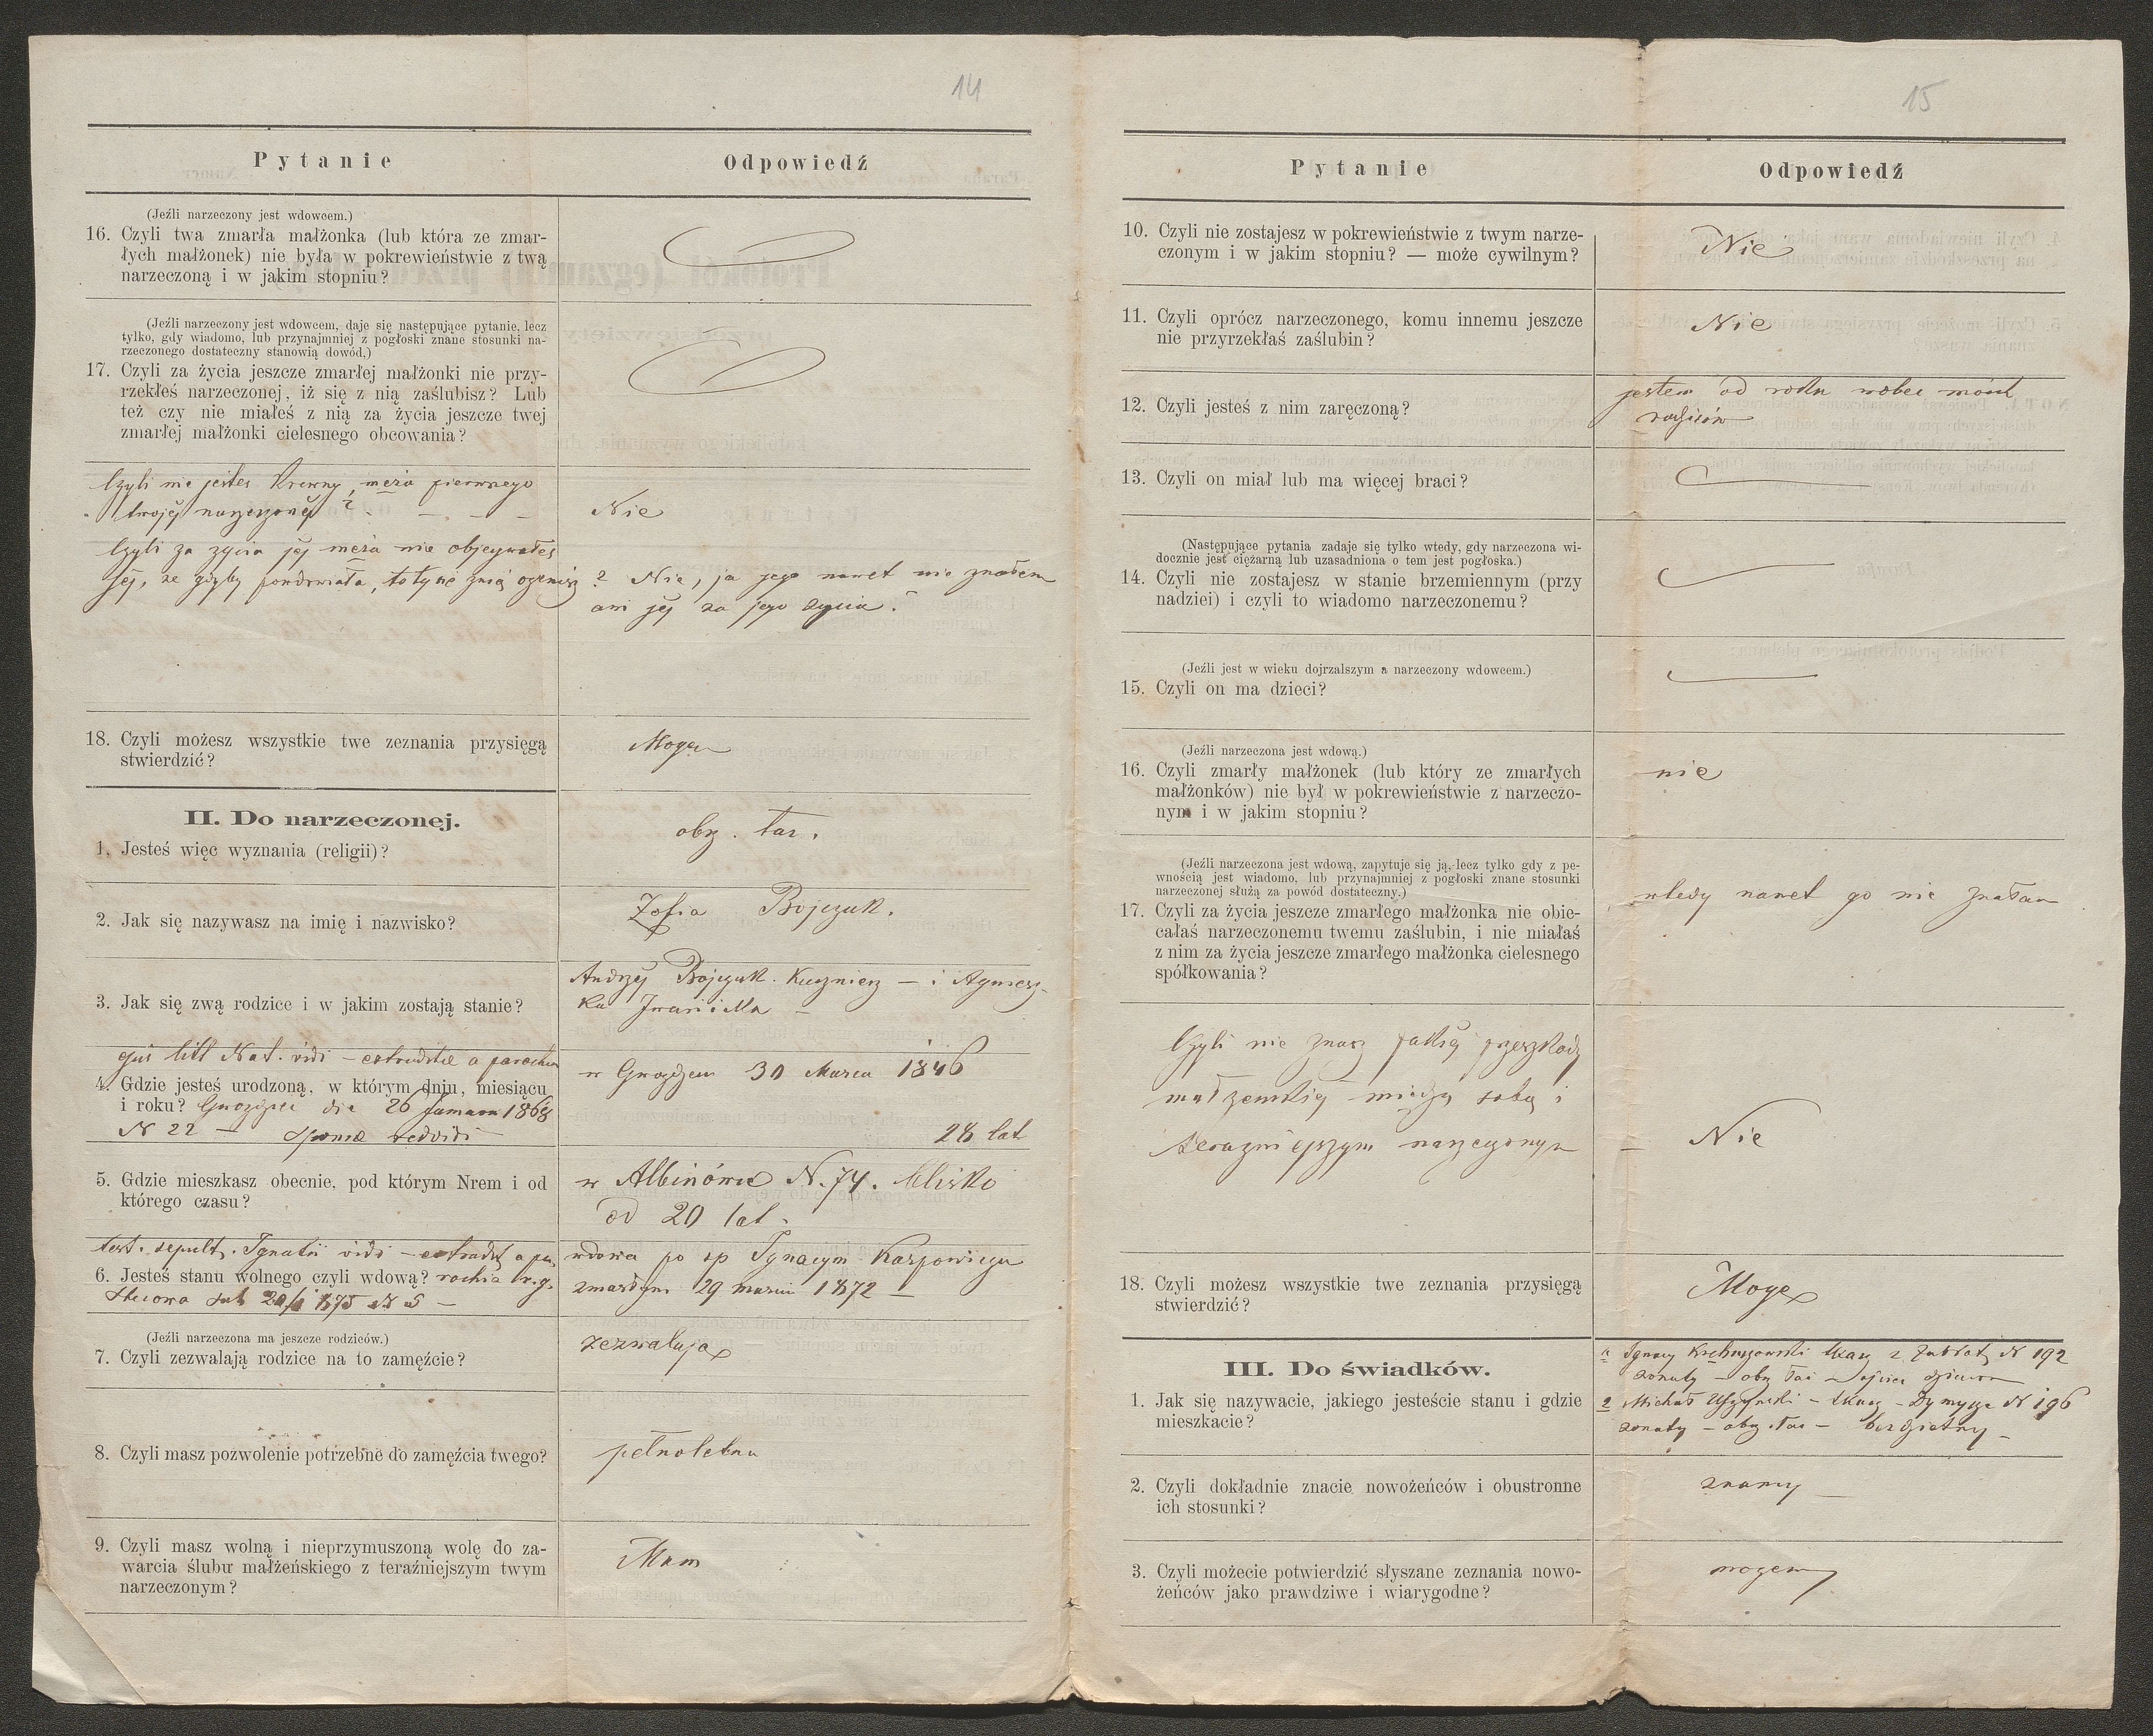 14
Pytanie
Odpowiedź
(Jeźli narzeczony jest wdowcem.)
16. Czyli twa zmarła małżonka (lub która ze zmar-
łych małżonek) nie była w pokrewieństwie z twą
narzeczoną i w jakim stopniu?
(Jeźli narzeczony jest wdowcem, daje się następujące pytanie, lecz
tylko, gdy wiadomo, lub przynajmniej z pogłoski znane stosunki na-
rzeczonego dostateczny stanowią dowód.)
17. Czyli za życia jeszcze zmarłej małżonki nie przy-
rzekłeś narzeczonej, iż się z nią zaślubisz? Lub
też czy nie miałeś z nią za życia jeszcze twej
zmarłej małżonki cielesnego obcowania?
Czyli nie jesteś krewny męża pierwszego
twojéj narzeczonéj?
Nie
Czyli za życia jéj męża nie objecywałeś
jéj, że gdyby , to tyś z nią ożenisz?
Nie, ja jego nawet nie znałem
ani jéj za jego życia.
18. Czyli możesz wszystkie twe zeznania przysięgą
stwierdzić?
Mogę
II. Do narzeczonej.
1. Jesteś więc wyznania (religii)?
obrz. łac.
2. Jak się nazywasz na imię i nazwisko?
Zofia Bojczuk.
3. Jak się zwą rodzice i w jakim zostają stanie?
Andrzéj Bojczuk. Kuśnierz — i Agniesz-
ka
4. Gdzie jesteś urodzoną, w którym dniu, miesiącu
i roku?
N 22 —
w Gwoźdzcu 30 Marca 1846
28 lat
5. Gdzie mieszkasz obecnie, pod którym Nrem i od
którego czasu?
w Albinówce N. 74. blisko
od 20 lat.
test. sepult. Ignatii vidi —
6. Jesteś stanu wolnego czyli wdową?
wdowa po śp Ignacym Karpowiczu
zmarłym 29 marca 1872 —
(Jeźli narzeczona ma jeszcze rodziców.)
7. Czyli zezwalają rodzice na to zamęźcie?
zezwalają
8. Czyli masz pozwolenie potrzebne do zamęźcia twego?
pełnoletna
9. Czyli masz wolną i nieprzymuszoną wolę do za-
warcia ślubu małżeńskiego z teraźniejszym twym
narzeczonym?
Mam
15
Pytanie
Odpowiedź
10. Czyli nie zostajesz w pokrewieństwie z twym narze-
czonym i w jakim stopniu? — może cywilnym?
Nie
11. Czyli oprócz narzeczonego, komu innemu jeszcze
nie przyrzekłaś zaślubin?
Nie
12. Czyli jesteś z nim zaręczoną?
jestem od roku wobec moich
rodziców
13. Czyli on miał lub ma więcej braci?
(Następujące pytania zadaje się tylko wtedy, gdy narzeczona wi-
docznie jest ciężarną lub uzasadniona o tem jest pogłoska.)
14. Czyli nie zostajesz w stanie brzemiennym (przy
nadziei) i czyli to wiadomo narzeczonemu?
(Jeźli jest w wieku dojrzalszym a narzeczony wdowcem.)
15. Czyli on ma dzieci?
(Jeźli narzeczona jest wdową.)
16. Czyli zmarły małżonek (lub który ze zmarłych
małżonków) nie był w pokrewieństwie z narzeczo-
nym i w jakim stopniu?
nie
(Jeźli narzeczona jest wdową, zapytuje się ją, lecz tylko gdy z pe-
wnością jest wiadomo, lub przynajmniej z pogłoski znane stosunki
narzeczonej służą za powód dostateczny.)
17. Czyli za życia jeszcze zmarłego małżonka nie obie-
całaś narzeczonemu twemu zaślubin, i nie miałaś
z nim za życia jeszcze zmarłego małżonka cielesnego
spółkowania?
wtedy nawet go nie znałam
Czyli nie znasz jakiéj przeszkody
małżeńskiéj między sobą i
teraźniejszym narzeczonym
— Nie
18. Czyli możesz wszystkie twe zeznania przysięgą
stwierdzić?
Mogę
III. Do świadków.
1. Jak się nazywacie, jakiego jesteście stanu i gdzie
mieszkacie?
1 Ignacy tkacz z N 192
żonaty — obrz łac —
2 Michał — tkacz — N 196
żonaty — obrz. łac — bezdzietny —
2. Czyli dokładnie znacie nowożeńców i obustronne
ich stosunki?
znamy —
3. Czyli możecie potwierdzić słyszane zeznania nowo-
żeńców jako prawdziwe i wiarygodne?
możemy